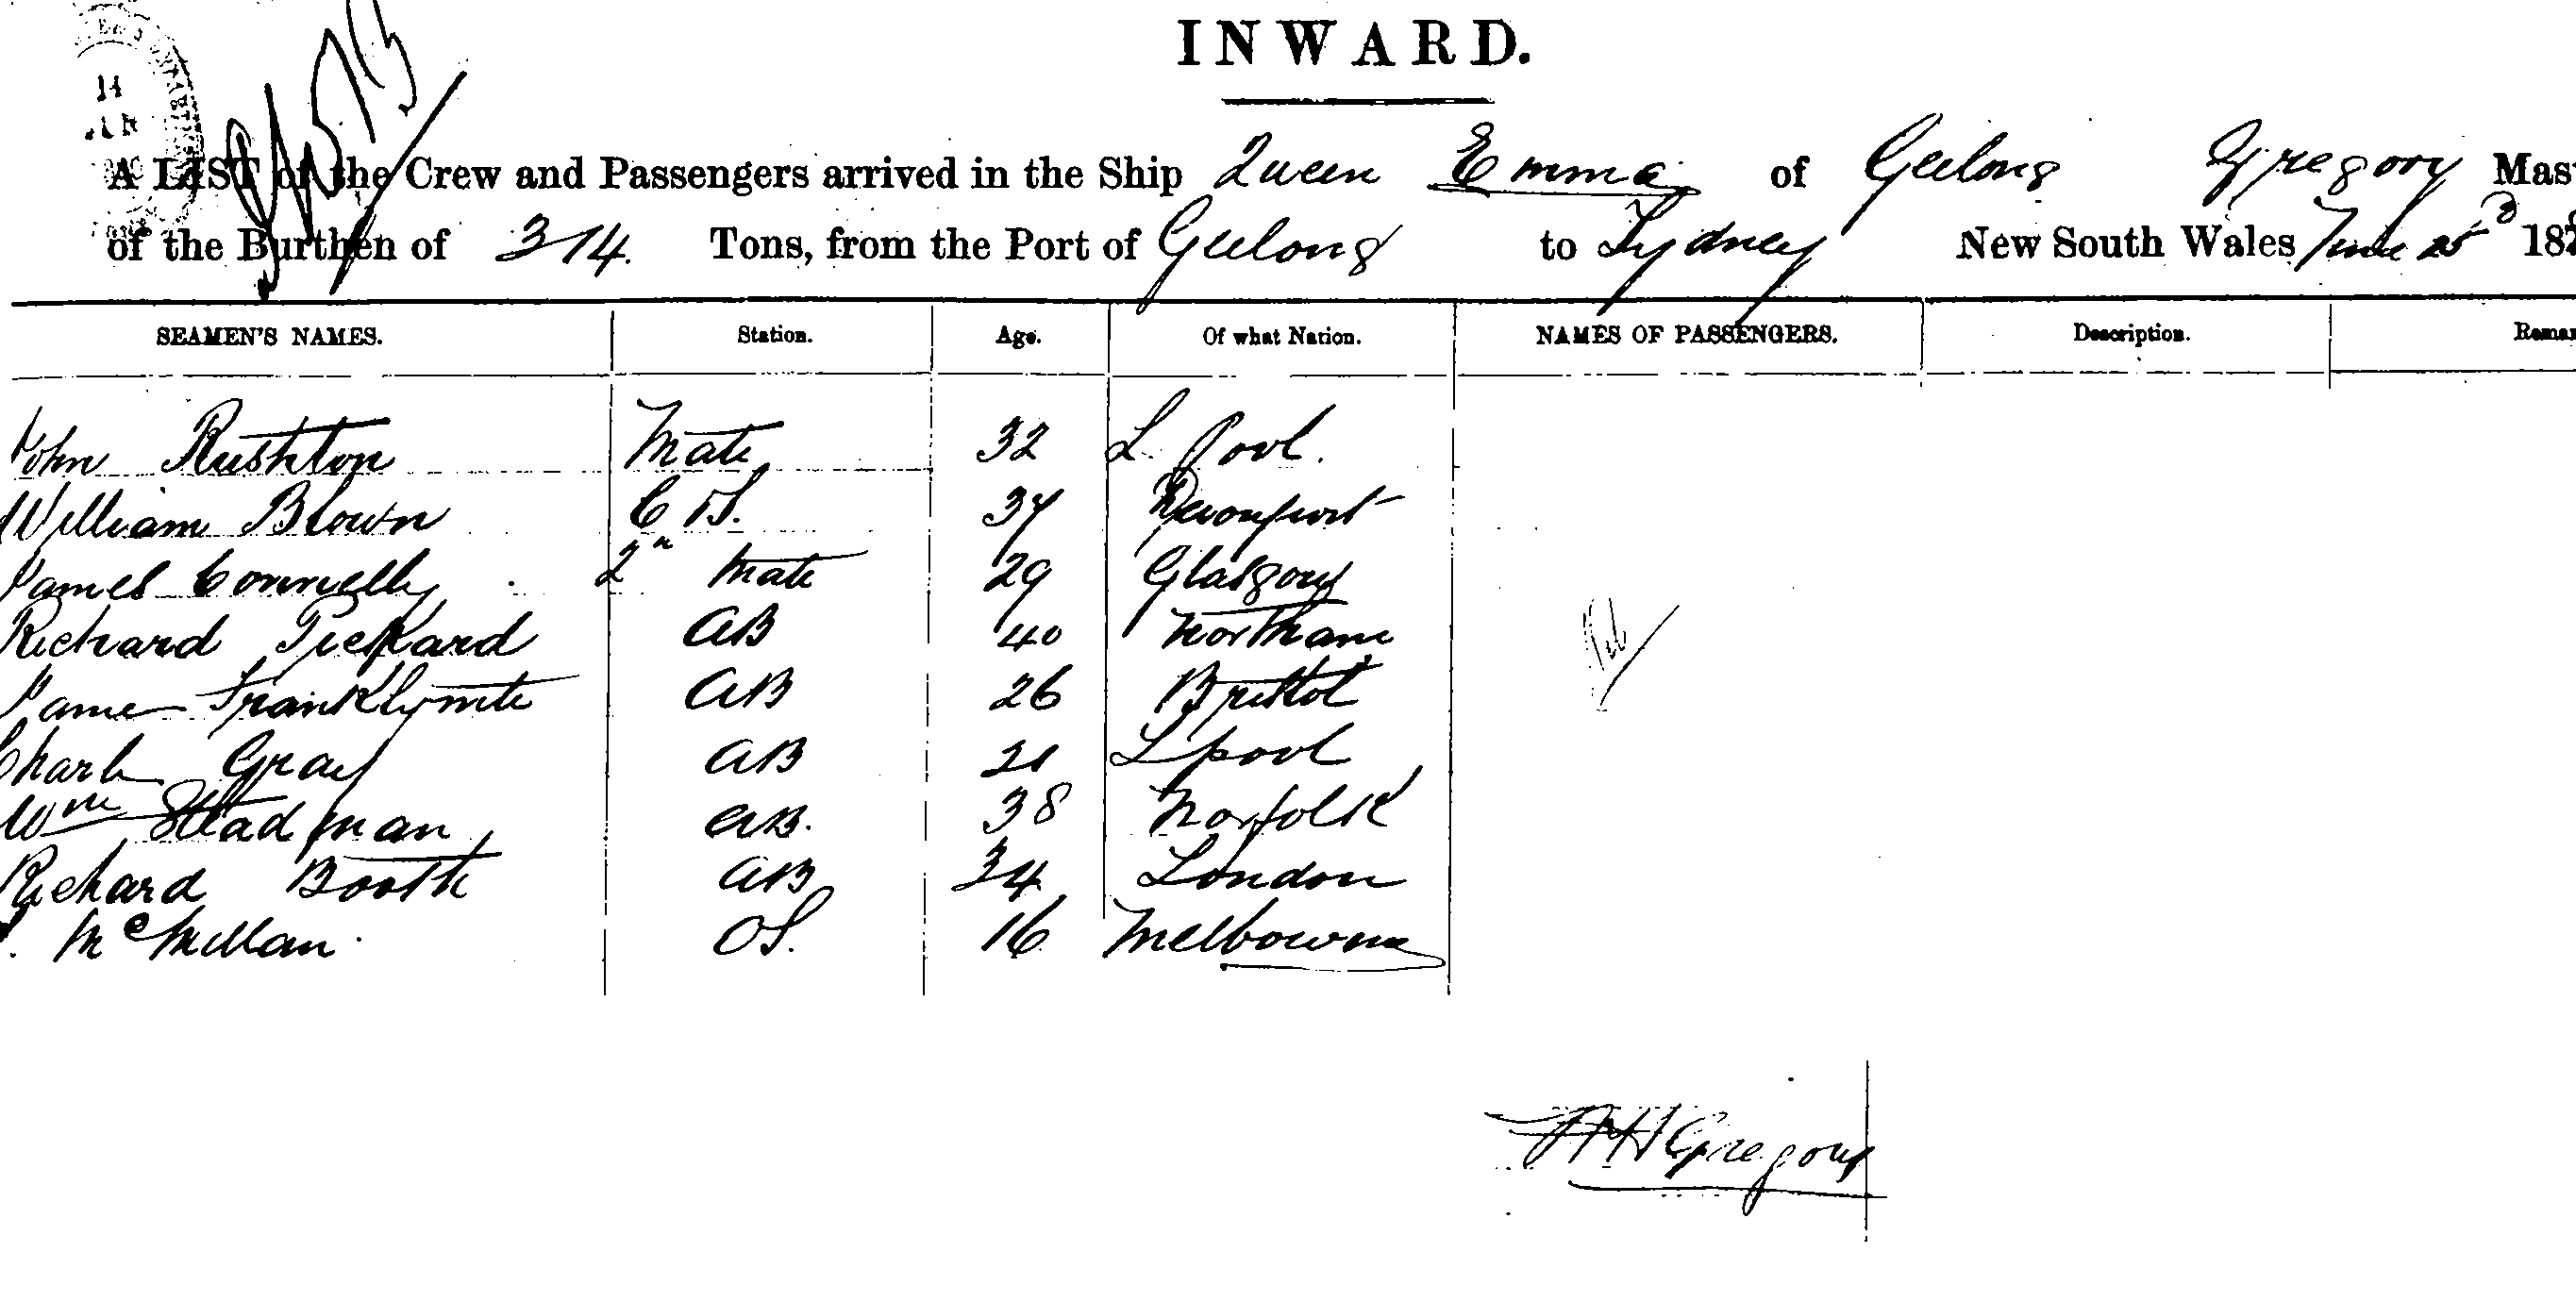 INWARD.
14
A LIST of the Crew and Passengers arrived in the Ship Queen Emma of Geelong Gregory Mas
of the Burthen of 314 Tons, from the Port of Geelong to Sydney New South Wales June 25 18
SEAMEN'S NAMES. Station. Age. Of what Nation. NAMES OF PASSENGERS. Description. Remar
John Rushton Mate 32 L Pool.
William Brown C S. 37 Devonport
James Connelly 2n Mate 29 Glasgow
Richard AB 40 Northam
James AB 26 Bristol
Charls Gray AB 21 Lpool
Wm Steadman AB. 38 Norfolk
Richard Booth AB 34 London
McMillan. OS. 16 Melbourne
Gregory